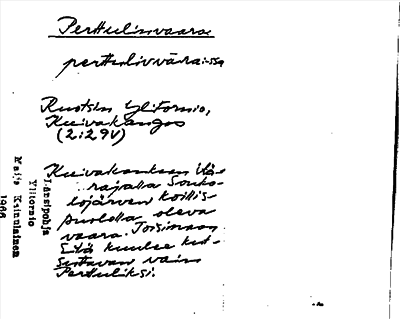 Perttulinvaara
perttulivvāra: -ssa
Ruotsin Ylitornio,
Kuivakangas
(2:29V)
Kuivakankaan itä-
rajalla Souko-
lojärven koillis-
puolella oleva
vaara. Toisinaan
kuulee kut-
suttavan vain
Perttuliksi.
Länsipohja
Ylitornio
Maija Kainulainen
1966